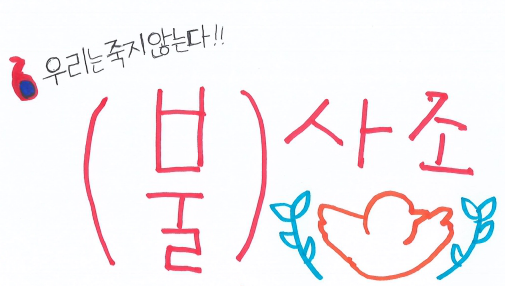 우리는 죽지않는다!!
(불)사조